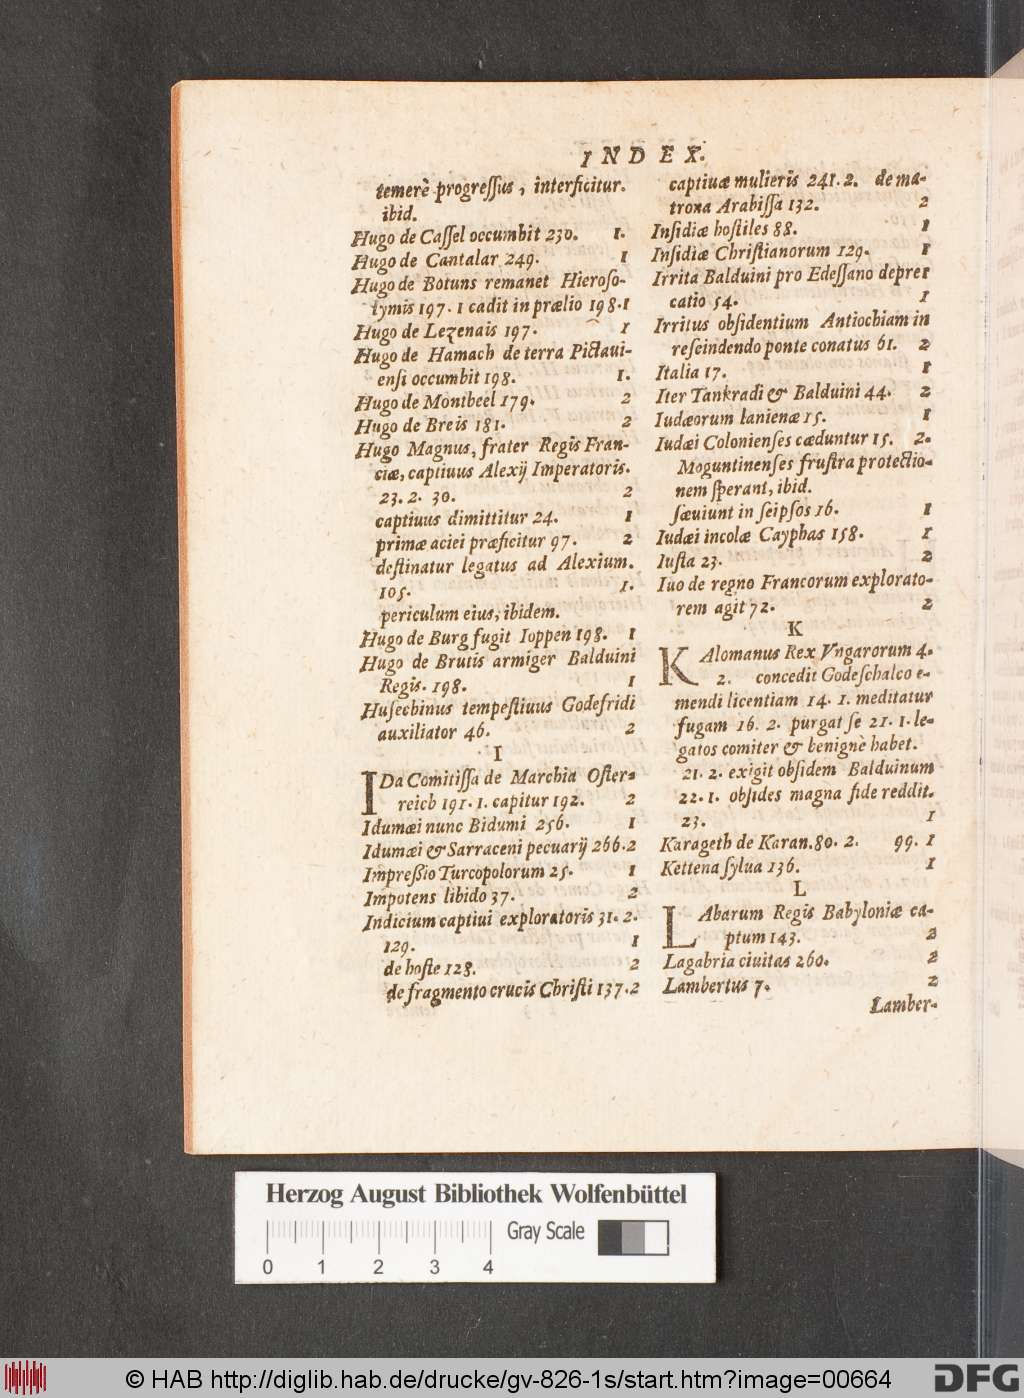 INDEX.
temerè progreſſus, interficitur.
ibid.
Hugo de Caſſel occumbit 230. 1.
Hugo de Cantalar 249. 1
Hugo de Botuns remanet Hieroſo-
lymis 197. 1 cadit in prælio 198. 1
Hugo de Lezenais 197. 1
Hugo de Hamach de terra Pictaui-
enſi occumbit 198. 1.
Hugo de Montbeel 179. 2
Hugo de Breis 181. 2
Hugo Magnus, frater Regis Fran-
ciæ, captiuus Alexij Imperatoris.
23. 2. 30. 2
captiuus dimittitur 24. 1
primæ aciei præficitur 97. 2
deſtinatur legatus ad Alexium.
105. 1.
periculum eius, ibidem.
Hugo de Burg fugit Ioppen 198. 1
Hugo de Brutis armiger Balduini
Regis. 198. 1
Huſechinus tempeſtiuus Godefridi
auxiliator 46. 2
I
IDa Comitiſſa de Marchia Oſter-
reich 191. 1. capitur 192. 2
Idumæi nunc Bidumi 256. 1
Idumæi & Sarraceni pecuarij 266. 2
Impreßio Turcopolorum 25. 1
Impotens libido 37. 2
Indicium captiui exploratoris 31. 2.
129. 1
de hoſte 128. 2
de fragmento crucis Chriſti 137. 2
captiuæ mulieris 241. 2. de ma-
trona Arabiſſa 132. 2
Inſidiæ hoſtiles 88. 1
Inſidiæ Chriſtianorum 129. 1
Irrita Balduini pro Edeſſano depre-
catio 54. 1
Irritus obſidentium Antiochiam in
reſcindendo ponte conatus 61. 2
Italia 17. 1
Iter Tankradi & Balduini 44. 2
Iudæorum lanienæ 15. 1
Iudæi Colonienſes cæduntur 15. 2.
Moguntinenſes fruſtra protectio-
nem ſperant, ibid.
ſæuiunt in ſeipſos 16. 1
Iudæi incolæ Cayphas 158. 1
Iuſta 23. 2
Iuo de regno Francorum explorato-
rem agit 72. 2
K
KAlomanus Rex Vngarorum 4.
2. concedit Godeſchalco e-
mendi licentiam 14. 1. meditatur
fugam 16. 2. purgat ſe 21. 1. le-
gatos comiter & benignè habet.
21. 2. exigit obſidem Balduinum
22. 1. obſides magna fide reddit.
23. 1
Karageth de Karan. 80. 2. 99. 1
Kettena ſylua 136. 1
L
LAbarum Regis Babyloniæ ca-
ptum 143. 2
Lagabria ciuitas 260. 2
Lambertus 7. 2
Lamber-
Herzog August Bibliothek Wolfenbüttel
Gray Scale
0 1 2 3 4
© HAB http://diglib.hab.de/drucke/gv-826-1s/start.htm?image=00664
DFG